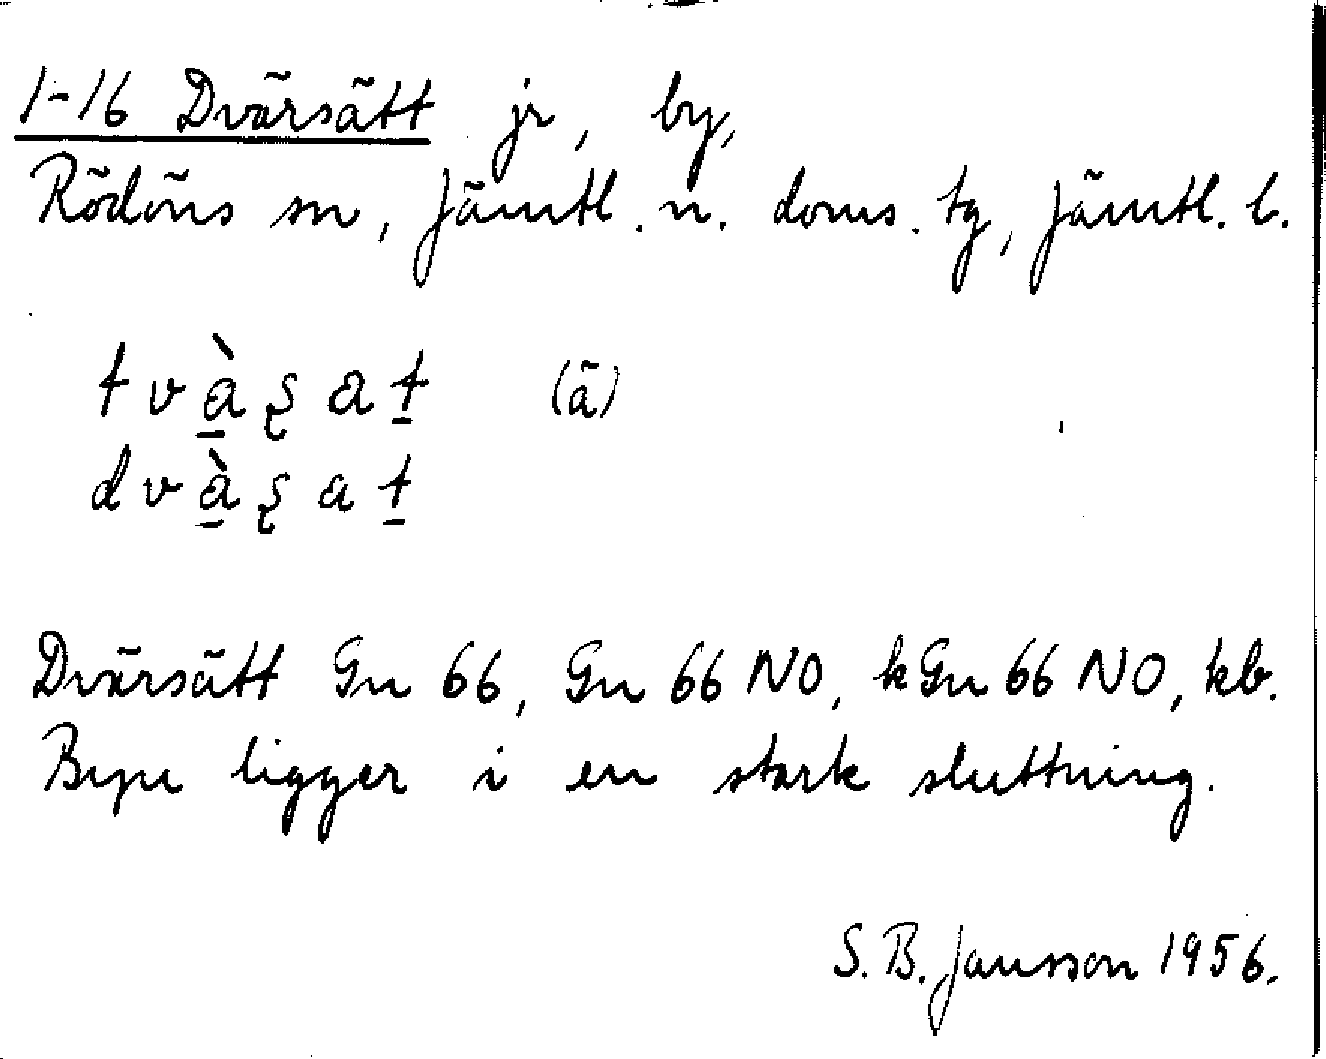 1-16 Dvärsätt jr, by,
Rödöns sn, Jämtl. n. doms. tg, Jämtl. l.
t v à̱ ʂ a ṯ (ä)
d v à̱ ʂ a ṯ
Dvärsätt Gn 66, Gn 66 NO, kGn 66 NO, kb.
Byn ligger i en stark sluttning.
S. B. Jansson 1956.